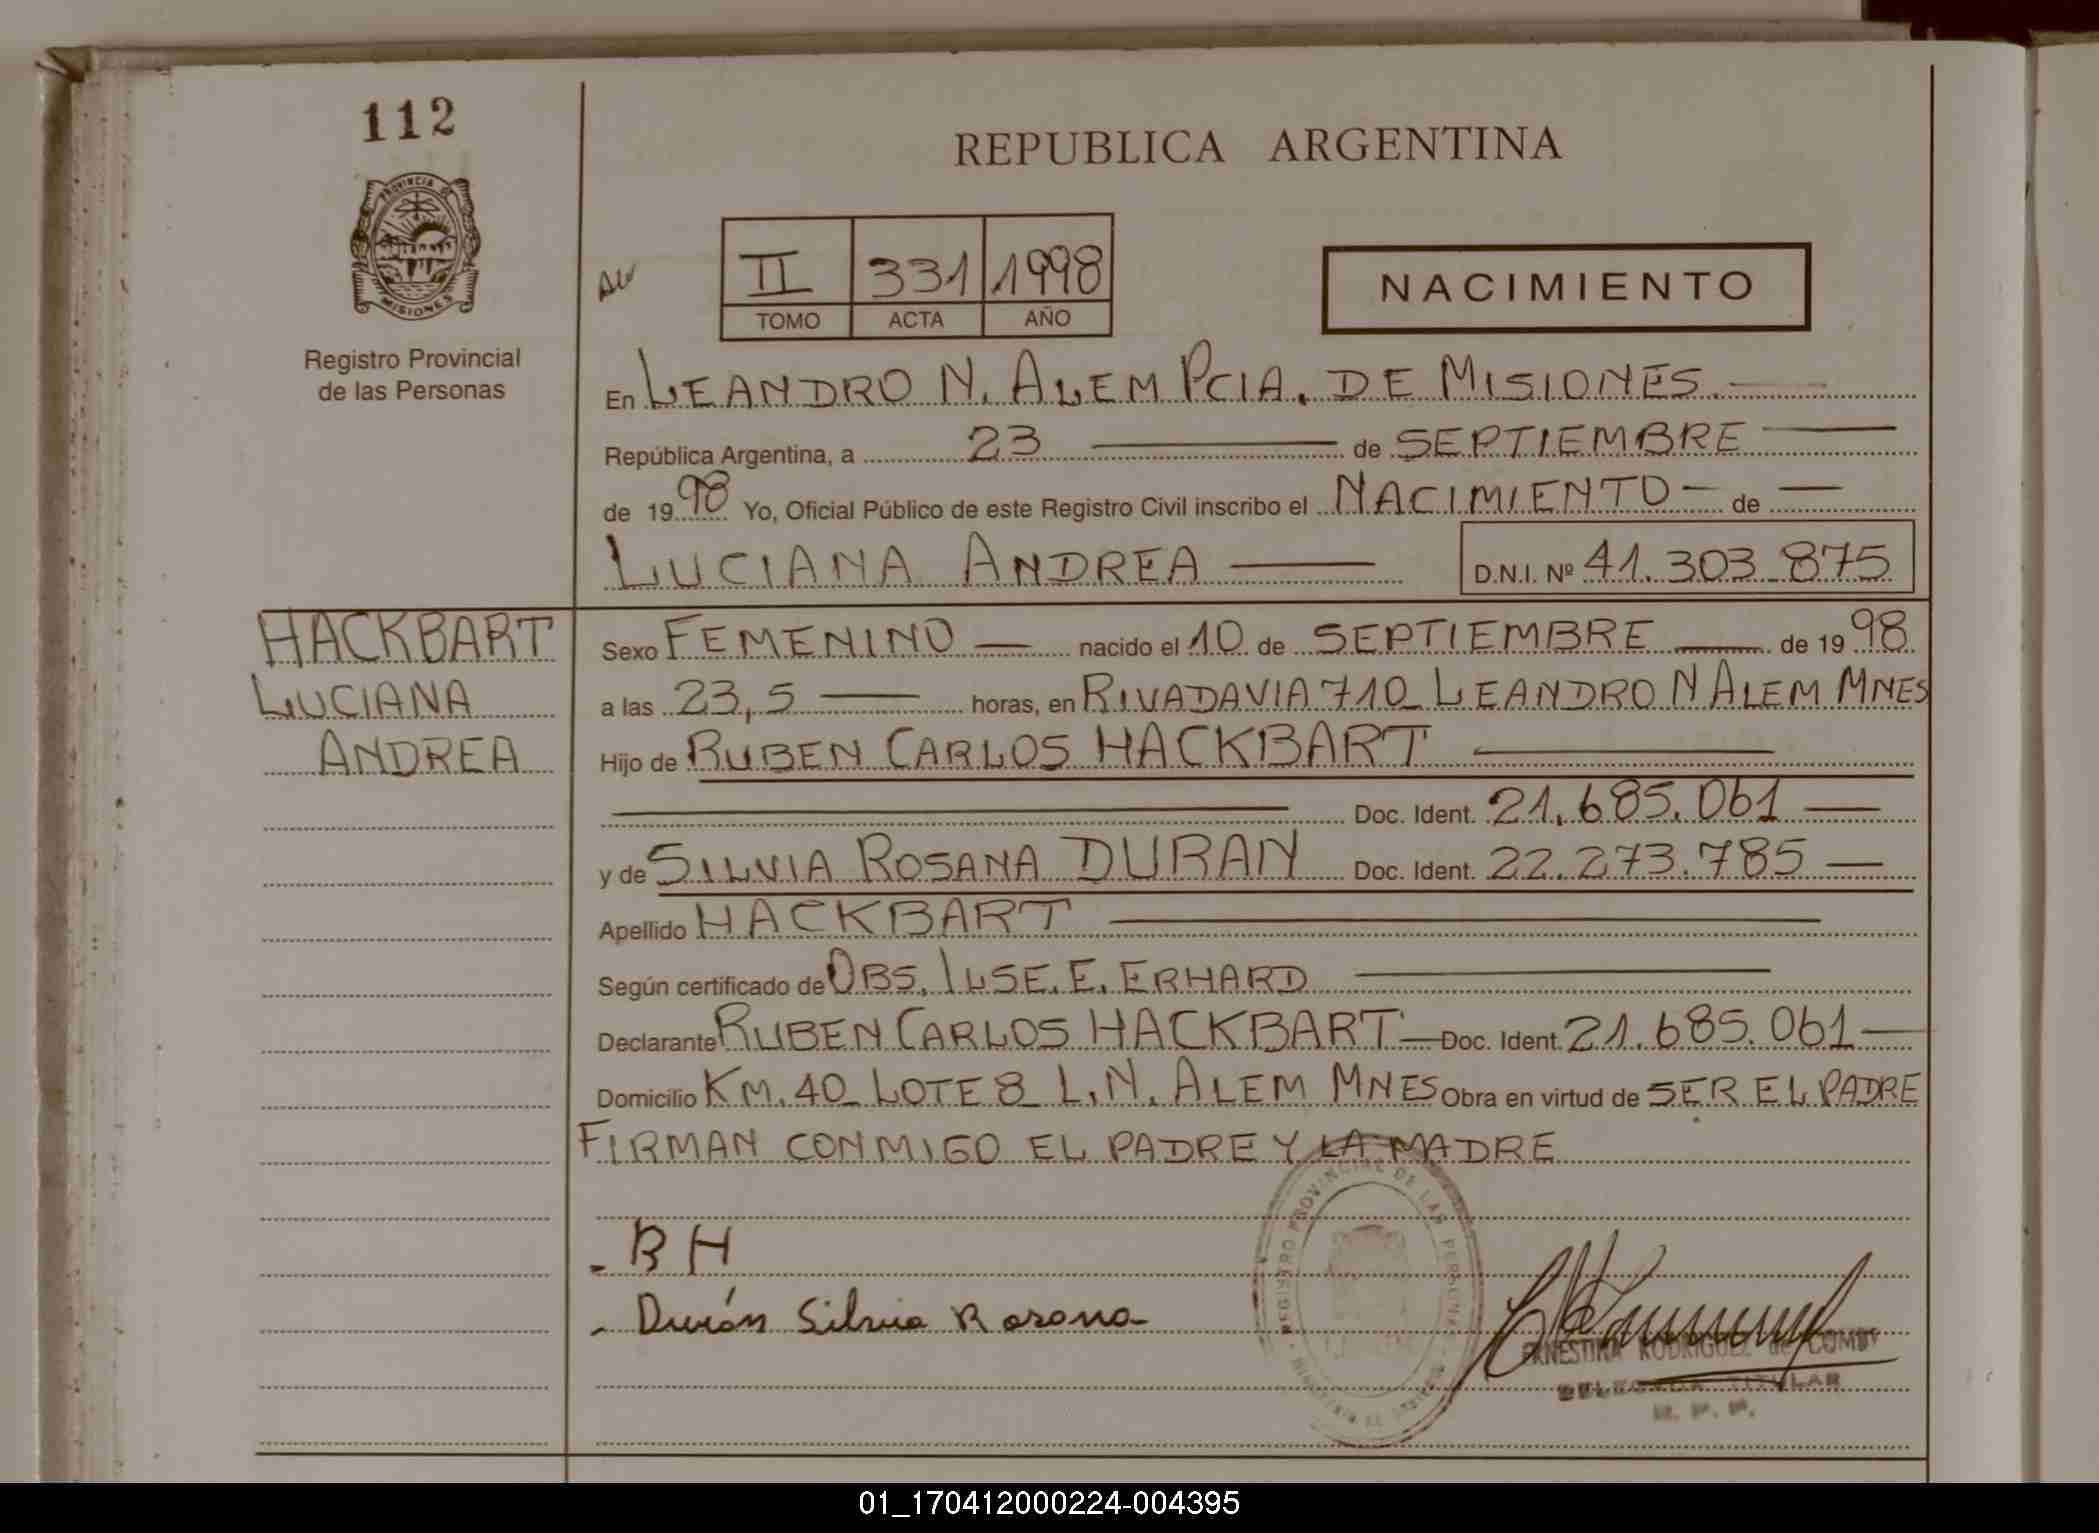 112
PROVINCIA DE
MISIONES
Registro Provincial
de las Personas
REPUBLICA ARGENTINA
II 331 1998
TOMO ACTA AÑO
NACIMIENTO
En LEANDRO N. ALEM PCIA. DE MISIONES.
República Argentina, a 23 de SEPTIEMBRE
de 1998 Yo, Oficial Público de este Registro Civil inscribo el NACIMIENTO de
LUCIANA ANDREA D.N.I. Nº 41.303.875
HACKBART
LUCIANA
ANDREA
Sexo FEMENINO nacido el 10 de SEPTIEMBRE de 1998
a las 23,5 horas, en RIVADAVIA 710_ LEANDRO N ALEM MNES
Hijo de RUBEN CARLOS HACKBART
Doc. Ident. 21.685.061
y de SILVIA ROSANA DURAN Doc. Ident. 22.273.785
Apellido HACKBART
Según certificado de OBS. ILSE. E. ERHARD
Declarante RUBEN CARLOS HACKBART Doc. Ident. 21.685.061
Domicilio KM. 40_ LOTE 8_ L.N. ALEM MNES Obra en virtud de SER EL PADRE
FIRMAN CONMIGO EL PADRE Y LA MADRE
REGISTRO PROVINCIAL DE LAS PERSONAS
- RH
- Durán Silvia Rosana
ERNESTINA RODRIGUEZ de COMBY
DELEGADA TITULAR
R. P. P.
01_170412000224-004395